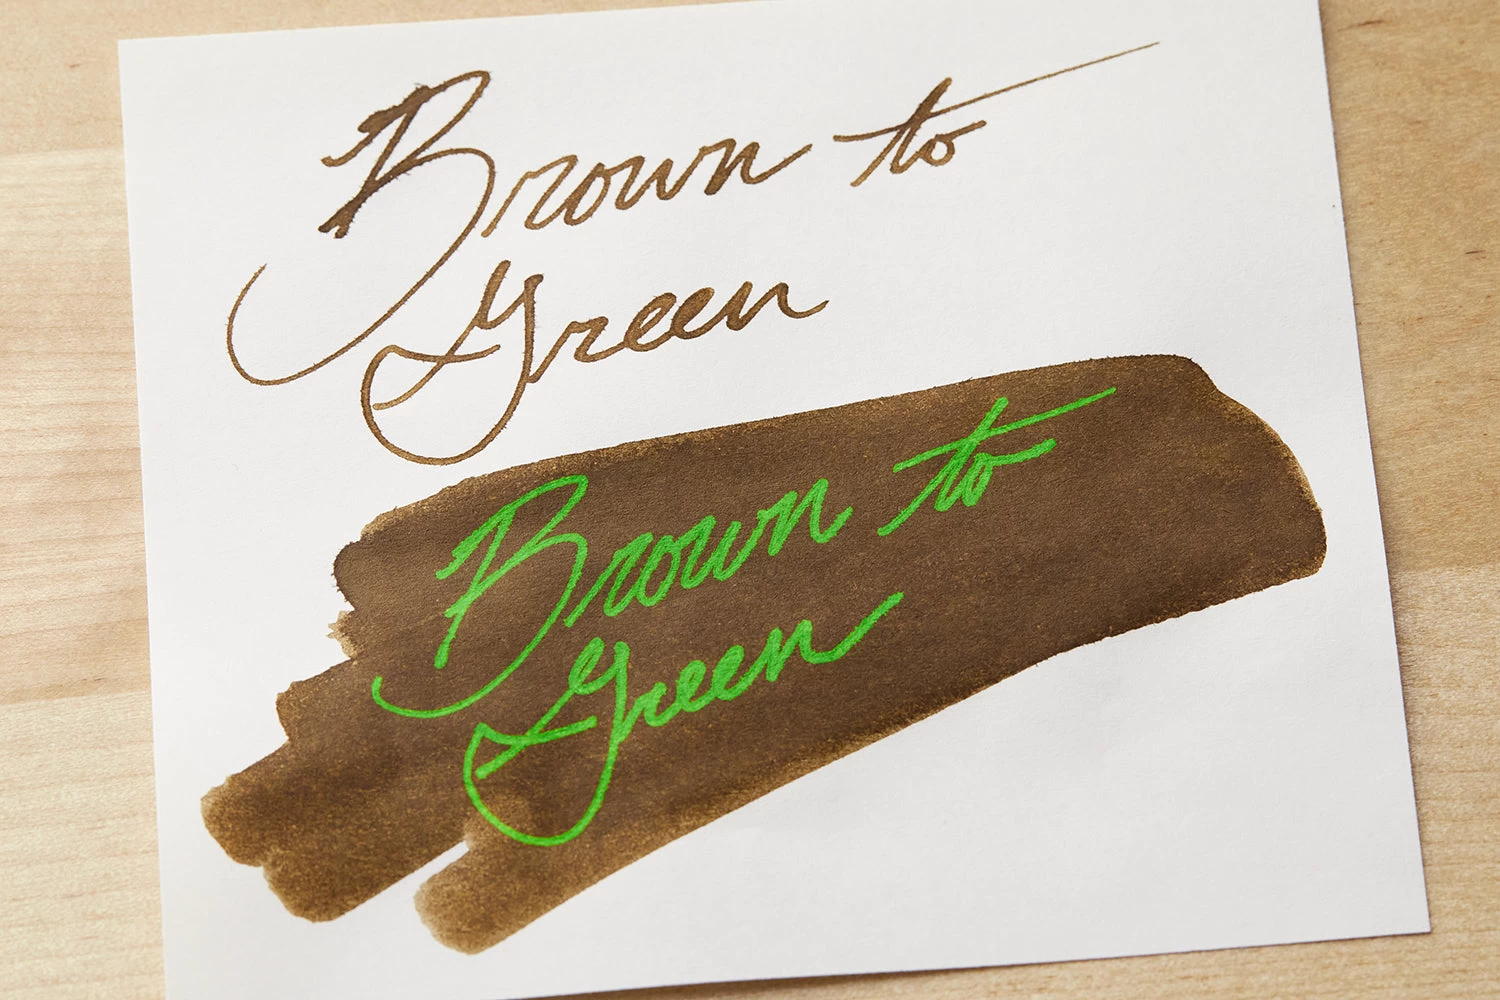 Brown to
Green
Brown to
Green